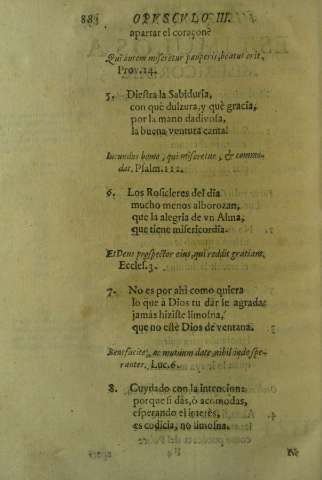 88 OPVSCVLO III.
apartar el coraçone
Qui autem miseretur pauperis, beatus erit,
Prov. 14.
5. Diestra la Sabiduria,
con què dulzura, y què gracia,
por la mano dadivosa,
la buena ventura canta!
Iucundus homo, qui miseretur, & commo-
dat. Psalm. 111.
6. Los Rosicleres del dia
mucho menos alborozan,
que la alegria de vn Alma,
que tiene misericordia.
Et Deus prospector eius, qui reddit gratiam.
Eccles. 3.
7. No es por ahi como quiera
lo que à Dios tu dàr se agrada:
jamàs hiziste limosna,
que no estè Dios de ventana.
Benefacite, ac mutuum date, nihil inde spe-
rantes. Luc. 6.
8. Cuydado con la intencion:
porque si dàs, ò acomodas,
esperando el interès,
es codicia, no limosna.